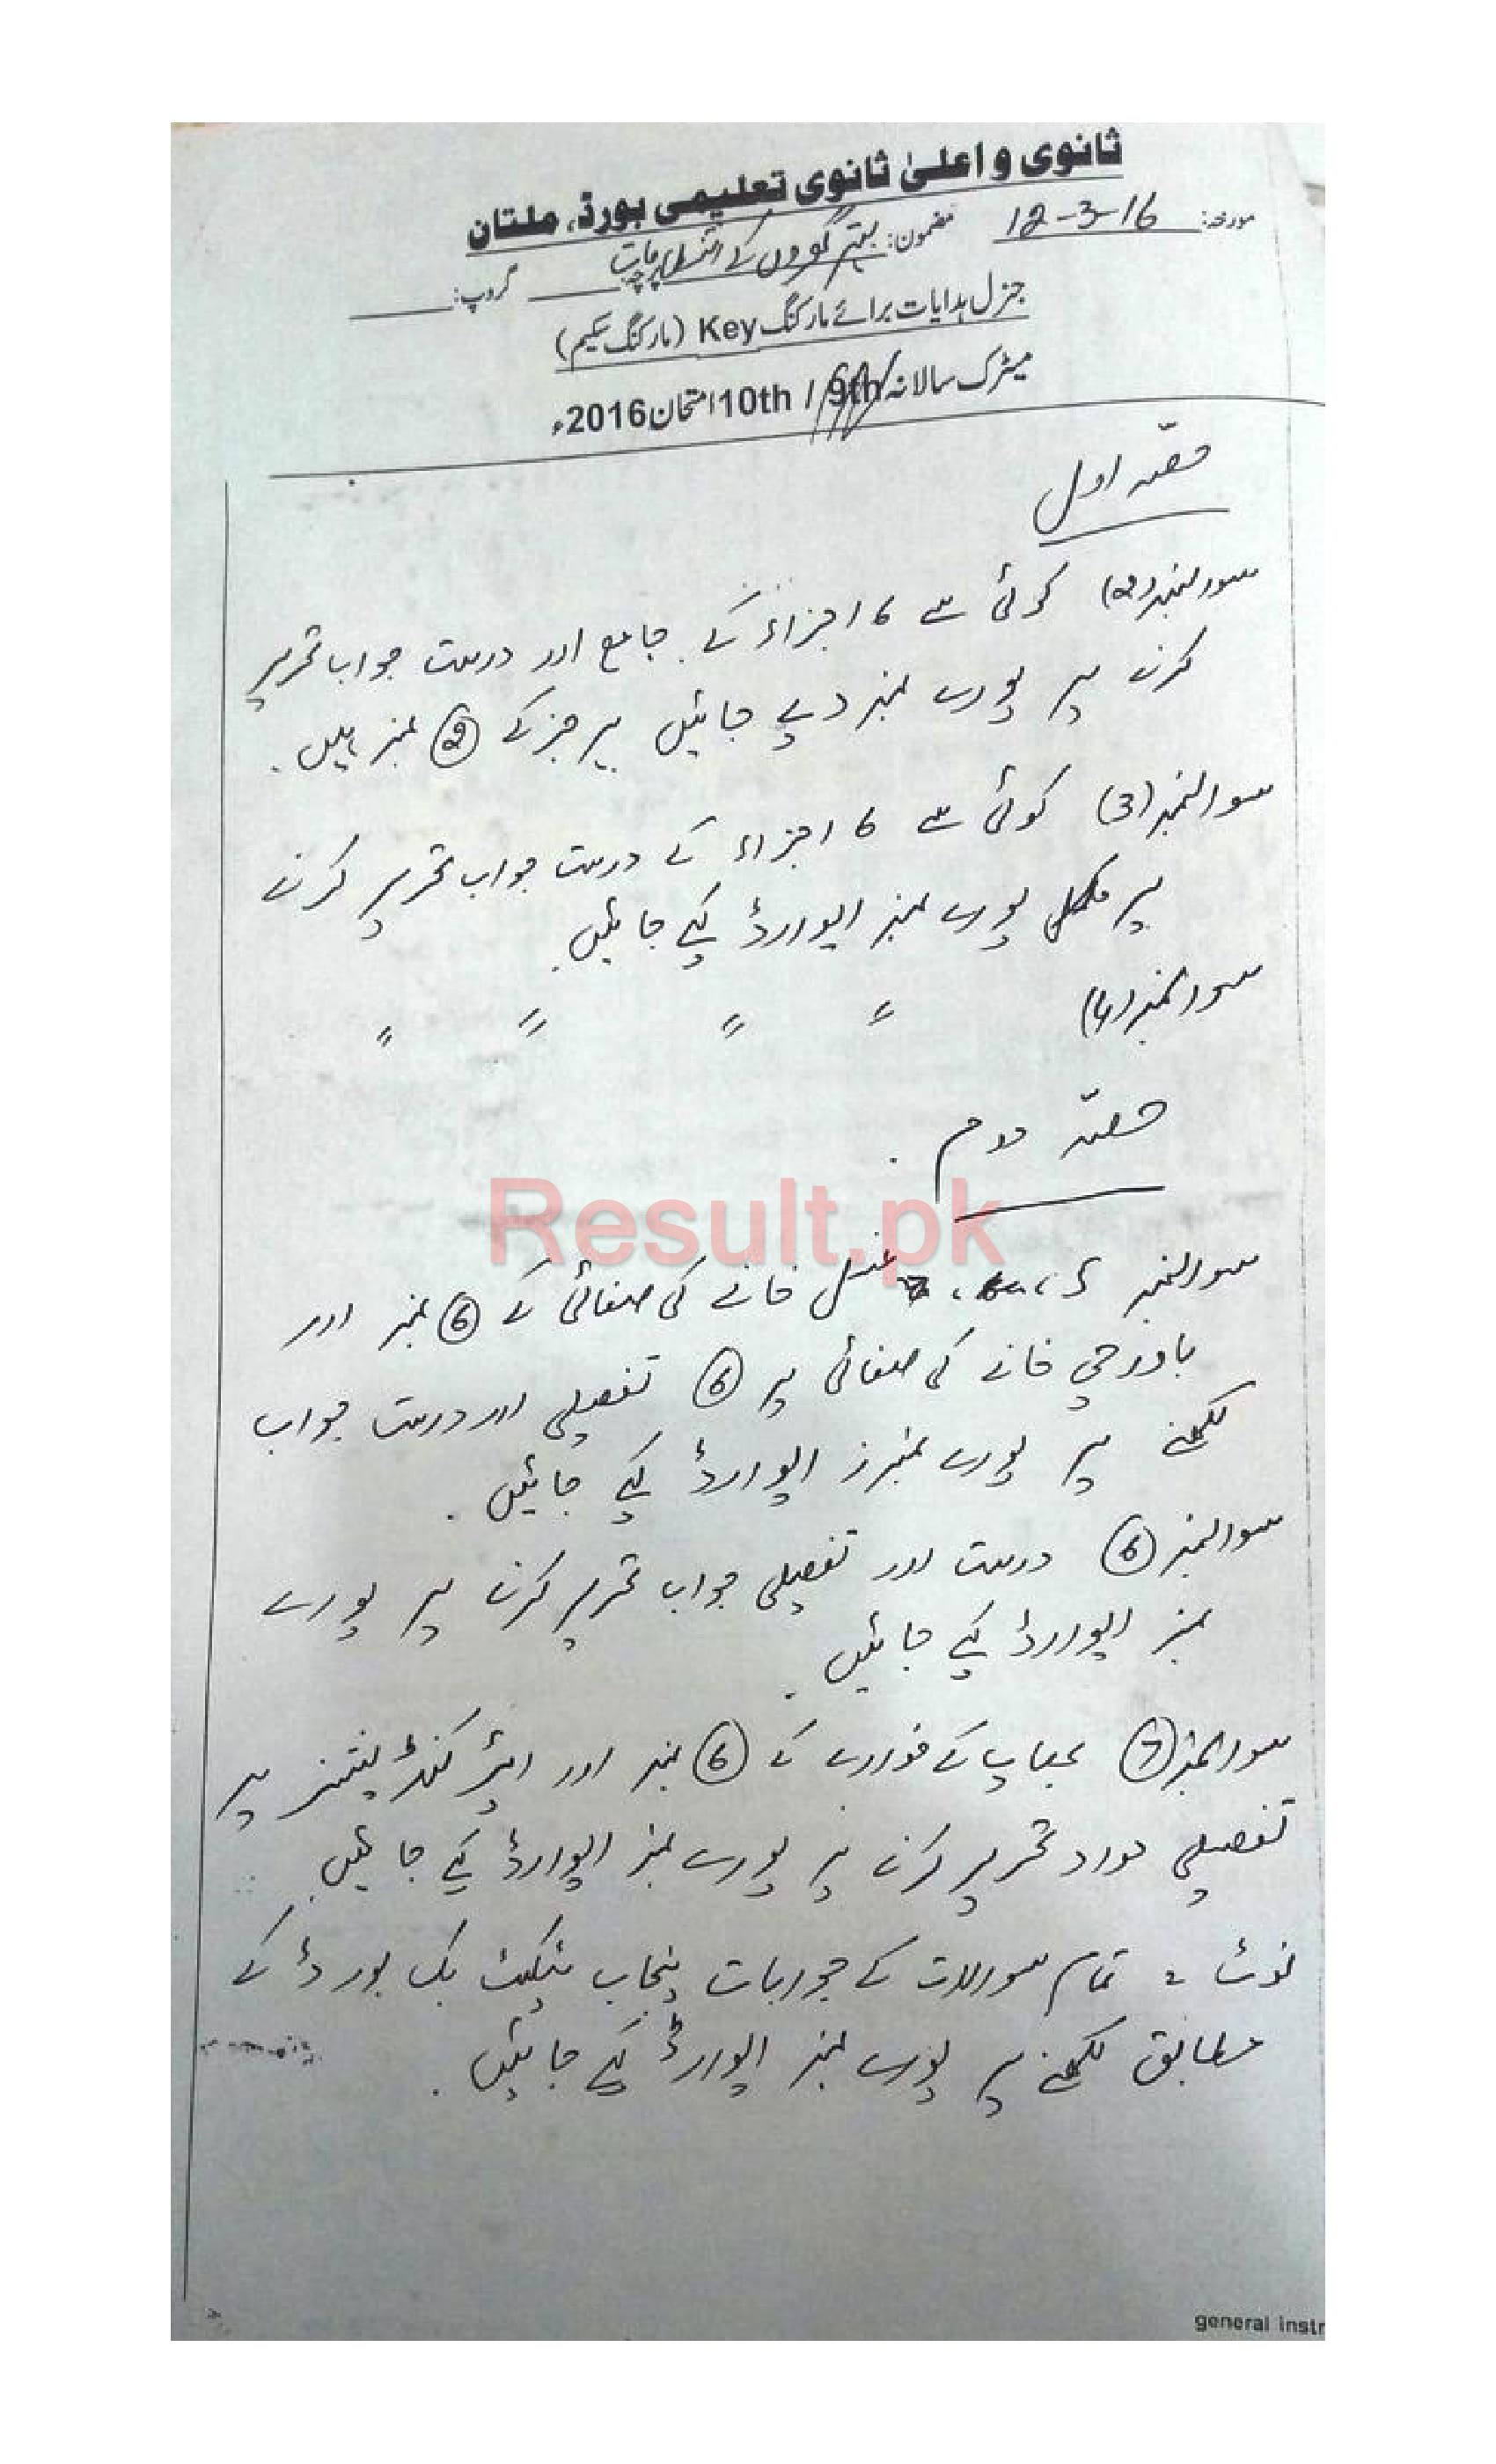 ثانوی و اعلیٰ ثانوی تعلیمی بورڈ، ملتان
مورخہ: 12-3-16 مضمون: بہتر گھروں کے پرچہ: گروپ:
جنرل ہدایات برائے مارکنگ Key (مارکنگ سکیم)
میٹرک سالانہ 9th / 10th امتحان 2016ء
حصّہ اول
سوال نمبر (2) کوئی سے 6 اجزاء کے جامع اور درست جواب تحریر
کرنے پر پورے نمبر دیے جائیں ہر جز کے 2 نمبر ہیں.
سوال نمبر (3) کوئی سے 6 اجزاء کے درست جواب تحریر کرنے
پر مکمل پورے نمبر ایوارڈ کیے جائیں.
سوال نمبر (4) " " " "
حصّہ دوم
Result.pk
سوال نمبر 5، غسل خانے کی صفائی کے 6 نمبر اور
باورچی خانے کی صفائی پر 6 تفصیلی اور درست جواب
لکھنے پر پورے نمبرز ایوارڈ کیے جائیں.
سوال نمبر 6 درست اور تفصیلی جواب تحریر کرنے پر پورے
نمبر ایوارڈ کیے جائیں.
سوال نمبر 7 بھاپ کے فوارے کے 6 نمبر اور ائیر کنڈیشنز پر
تفصیلی تحریر کرنے پر پورے نمبر ایوارڈ کیے جائیں.
نوٹ: تمام سوالات کے جوابات پنجاب ٹیکسٹ بک بورڈ کے
مطابق لکھنے پر پورے نمبر ایوارڈ کیے جائیں.
general instr